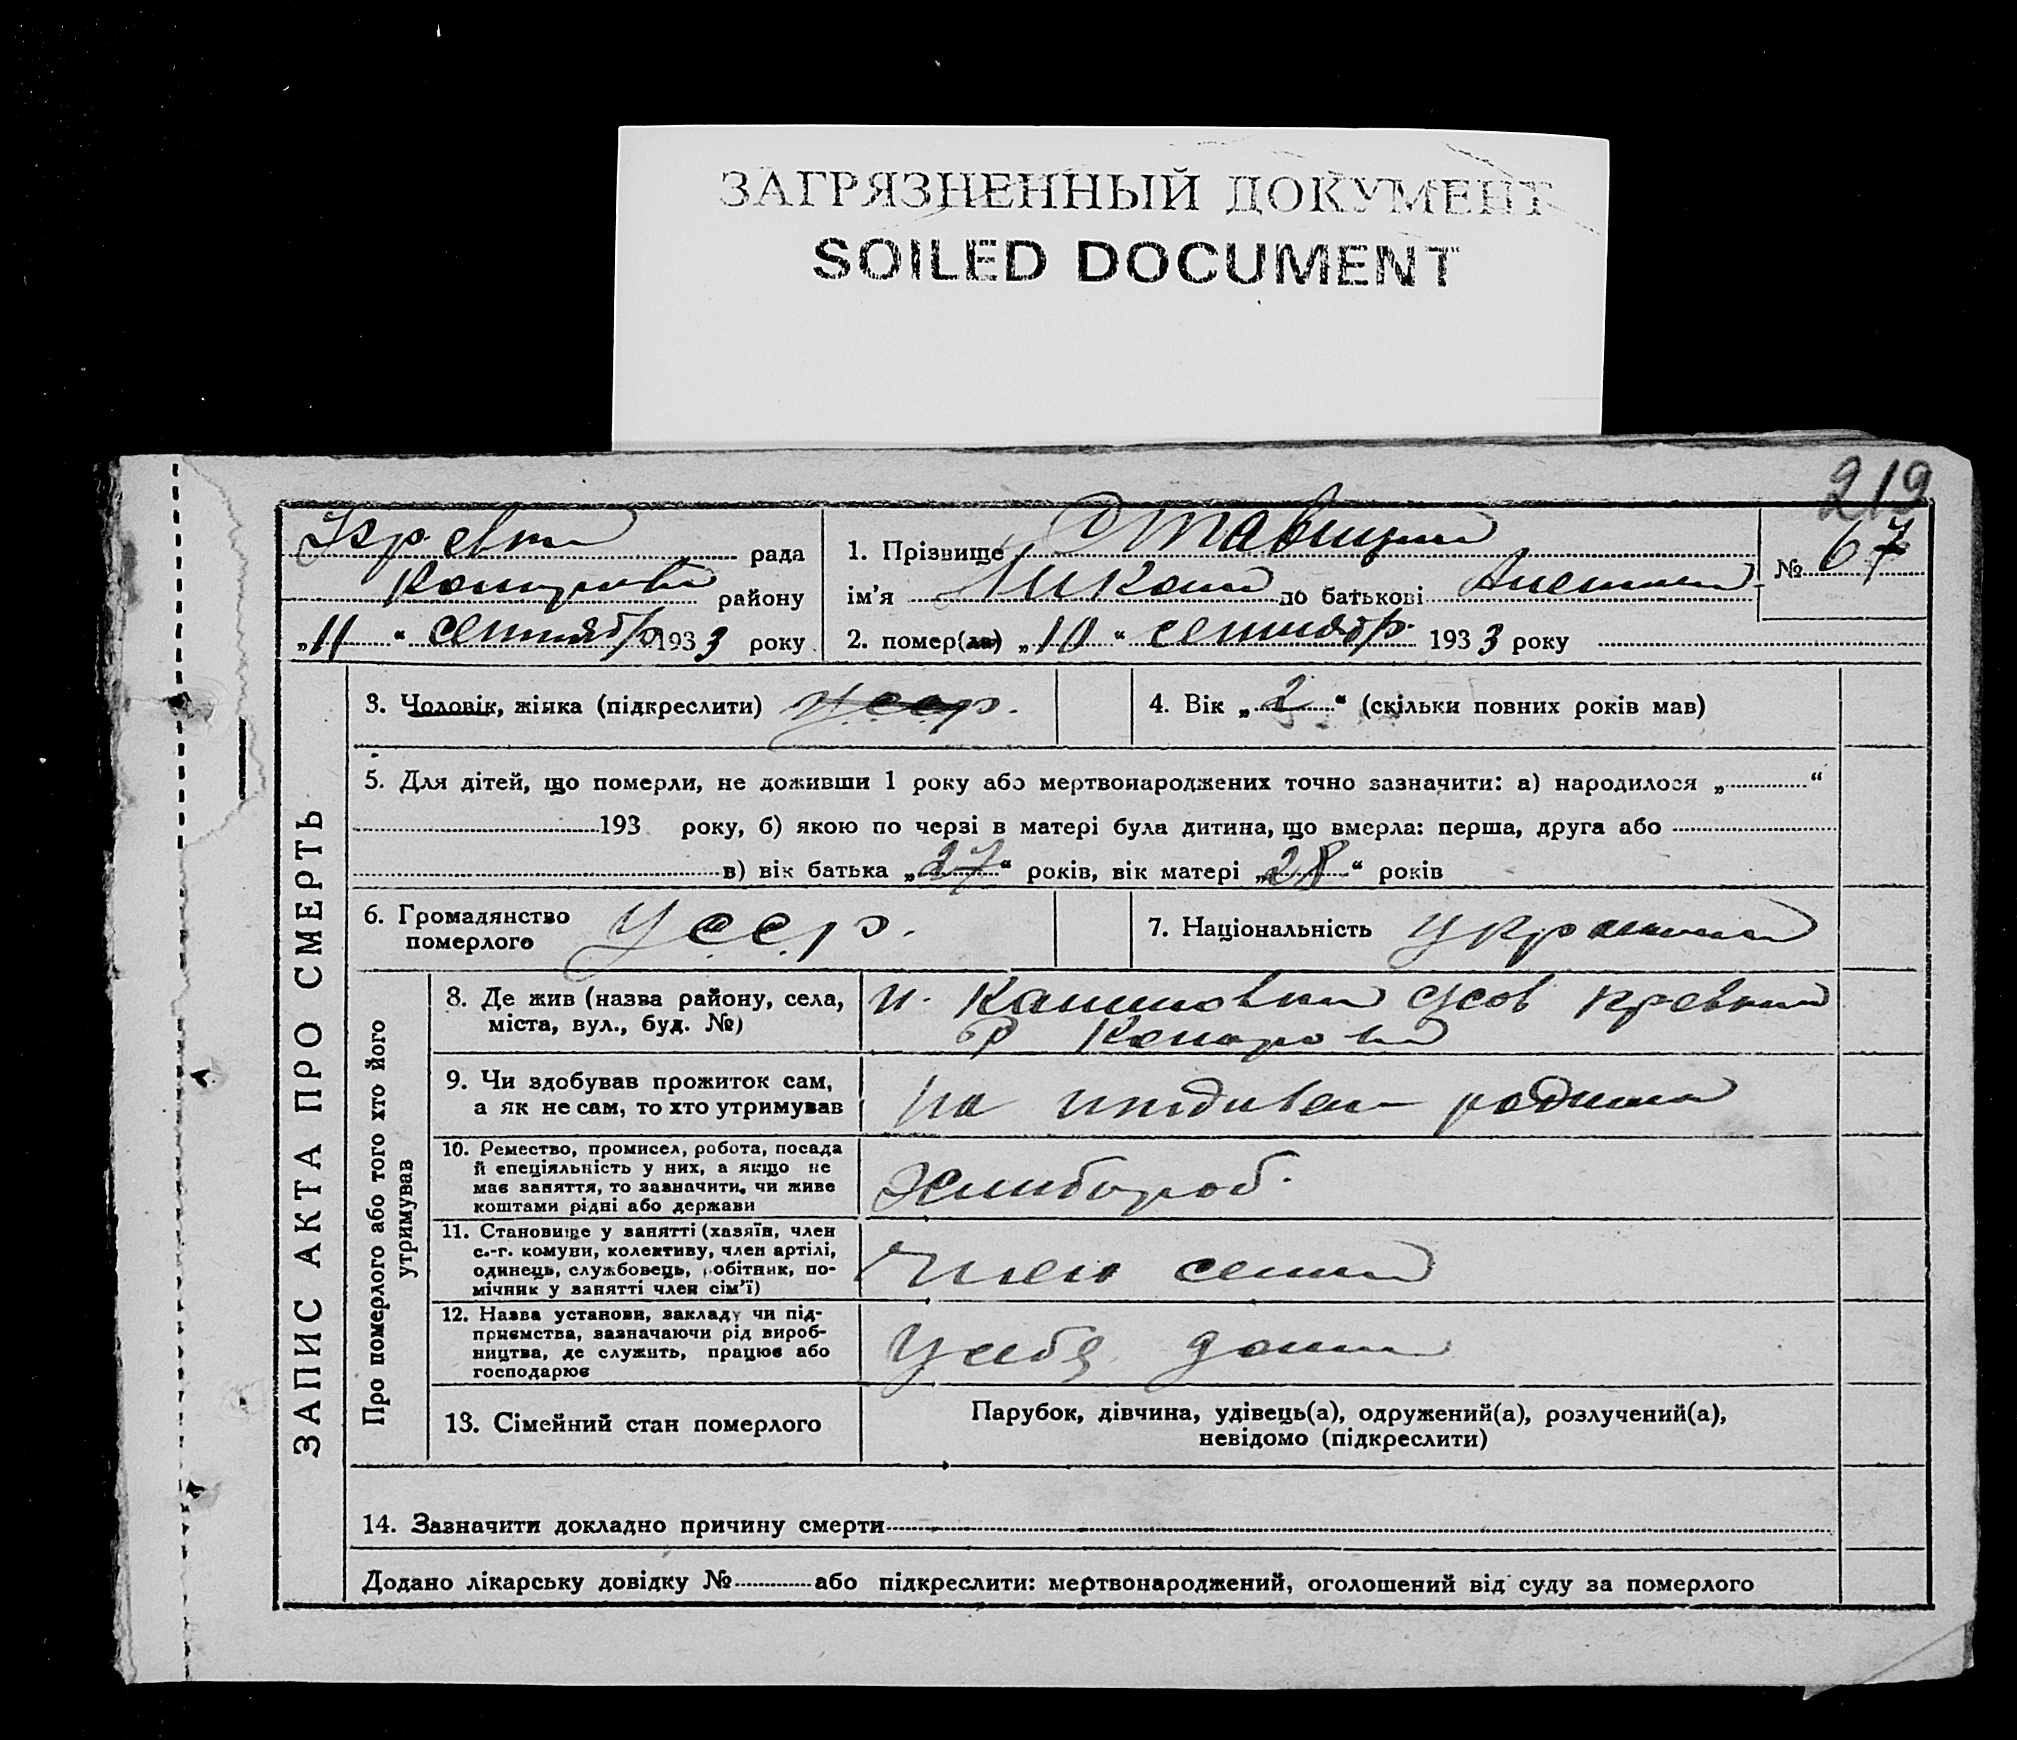 ЗАГРЯЗНЕННЫЙ ДОКУМЕНТ
SOILED DOCUMENT
219
рада
району
„11“ сентября 1933 року
1. Прізвище
ім'я по батькові
№ 67
2. помер(ла) „10“ сентябр. 1933 року
ЗАПИС АКТА ПРО СМЕРТЬ
3. Чоловік, жінка (підкреслити)
4. Вік „2“ (скільки повних років мав)
5. Для дітей, що померли, не доживши 1 року або мертвонароджених точно зазначити: а) народилося „ “
193 року, б) якою по черзі в матері була дитина, що вмерла: перша, друга або
в) вік батька „27“ років, вік матері „28“ років
6. Громадянство
померлого
Усср.
7. Національність
Про померлого або того хто його
утримував
8. Де жив (назва району, села,
міста, вул., буд. №)
9. Чи здобував прожиток сам,
а як не сам, то хто утримував
10. Ремество, промисел, робота, посада
й спеціяльність у них, а якщо не
має заняття, то зазначити, чи живе
коштами рідні або держави
Хлибороб.
11. Становище у занятті (хазяїн, член
с.-г. комуни, колективу, член артілі,
одинець, службовець, робітник, по-
мічник у занятті член сім'ї)
Член семьи
12. Назва установи, закладу чи під-
приємства, зазначаючи рід вироб-
ництва, де служить, працює або
господарює
У себя дома
13. Сімейний стан померлого
Парубок, дівчина, удівець(а), одружений(а), розлучений(а),
невідомо (підкреслити)
14. Зазначити докладно причину смерти
Додано лікарську довідку № або підкреслити: мертвонароджений, оголошений від суду за померлого